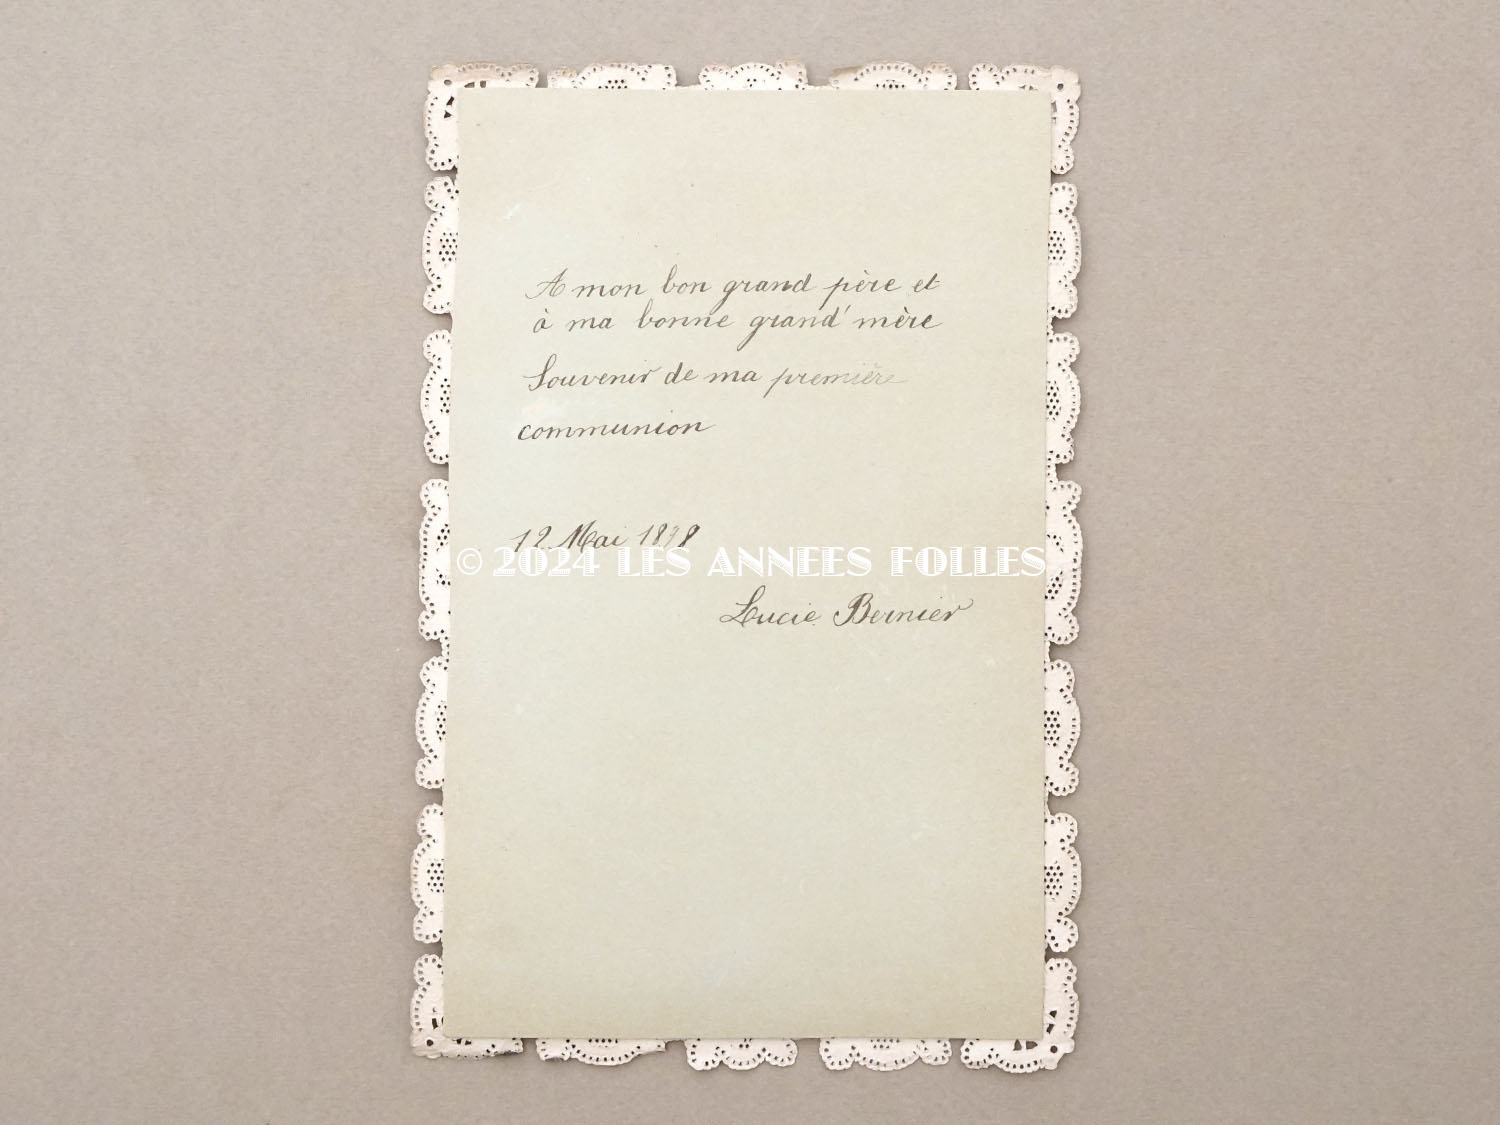 A mon bon grand père et
à ma bonne grand' mère
Souvenir de ma première
communion
12 Mai 1898
© 2024 LES ANNEES FOLLES
Lucie Bernier